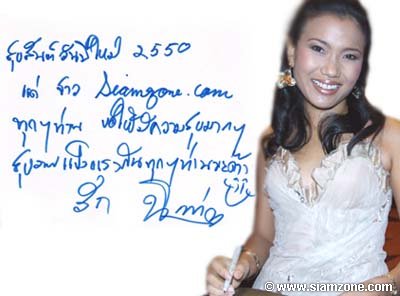 สุขสันต์วันปีใหม่ 2550
แด่ ชาว Siamzone.com
ทุกๆท่าน ขอให้มีความสุขมากๆ
สุขภาพแข็งแรงกันทุกๆท่านนะค้า
รัก
©www.siamzone.com